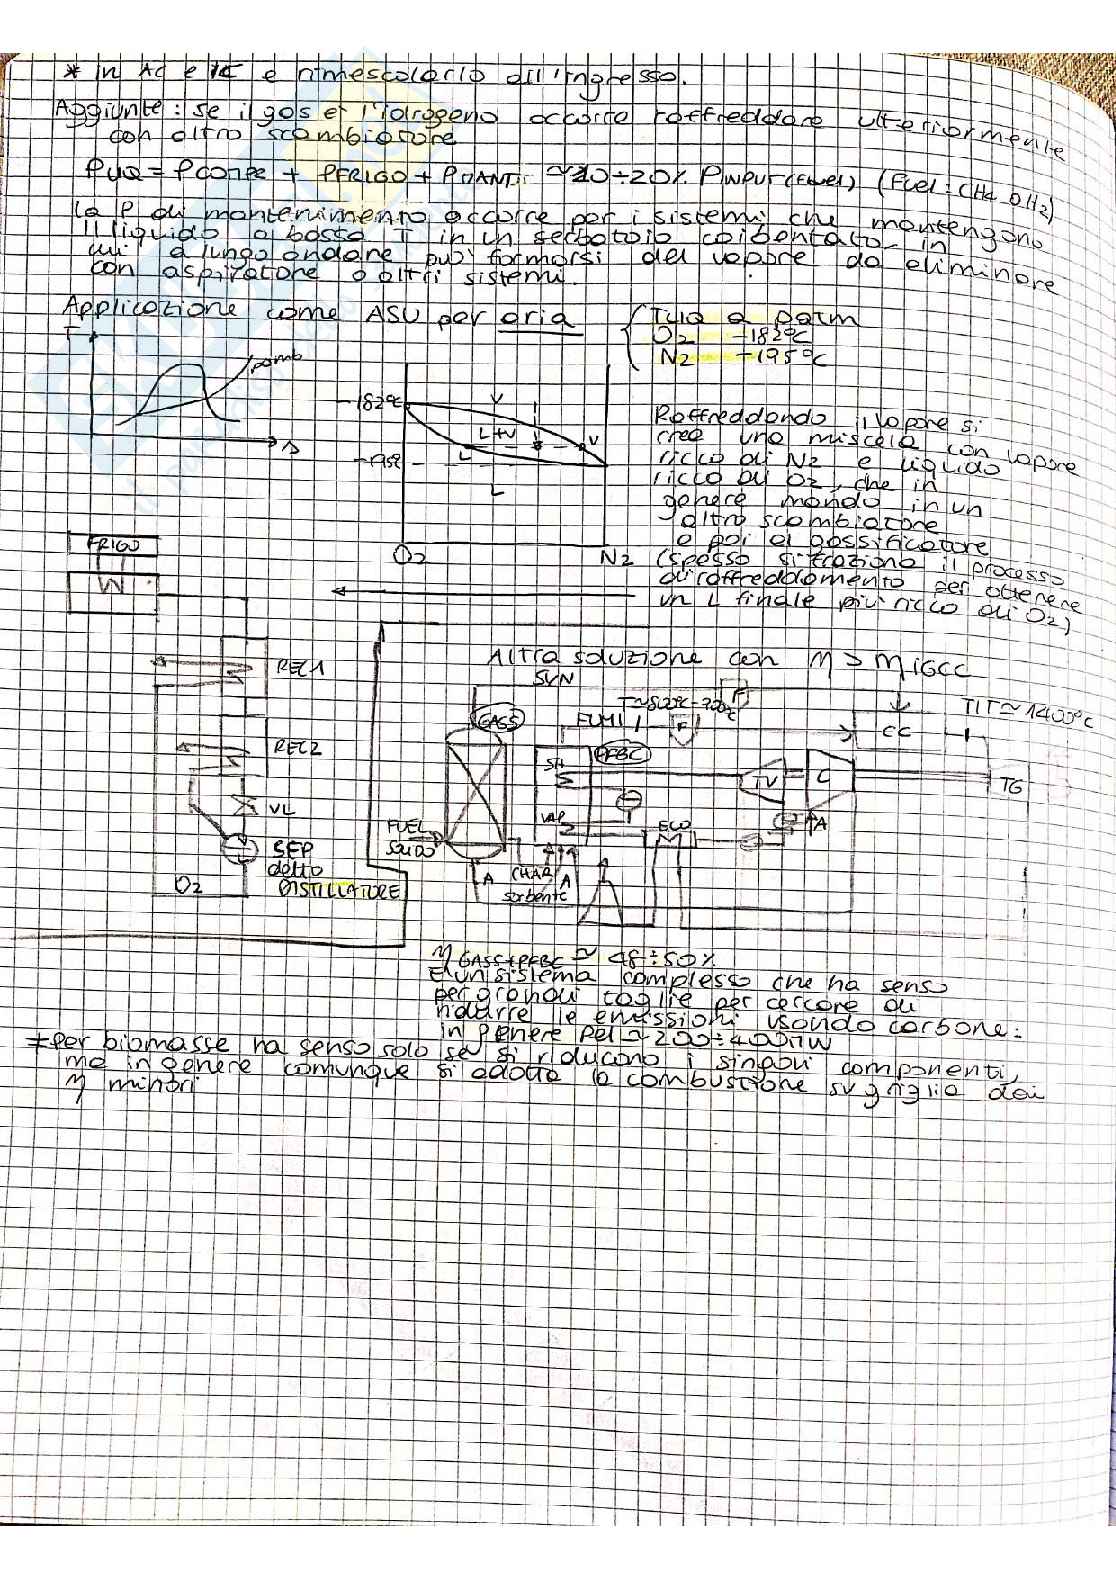 * In AC e IC e rimescolarlo all'ingresso.
Aggiunte: se il gas è l'idrogeno occorre raffreddare ulteriormente
con altro scambiatore
PLIQ = PCOMPR + PFRIGO + PMANT: ≃ 10÷20% PINPUT (FUEL) (Fuel: CH4 o H2)
La P di mantenimento occorre per i sistemi che mantengono
il liquido a bassa T in un serbatoio coibentato in
cui a lungo andare può formarsi del vapore da eliminare
con aspiratore o altri sistemi.
Applicazione come ASU per aria
TLIQ a patm
O2 -182°C
N2 -195°C
T
pamb
s
-182°C
-195°C
V
L+V
V
L
L
O2
N2
Raffreddando il vapore si
crea una miscela con vapore
ricco di N2 e liquido
ricco di O2, che in
genere mando in un
altro scambiatore
e poi al gassificatore
(spesso si fraziona il processo
di raffreddamento per ottenere
un L finale più ricco di O2)
FRIGO
REC1
REC2
VL
SEP
detto
DISTILLATORE
O2
Altra soluzione con η > η IGCC
SYN
GASS
FUMI
F
F
PFBC
SH
VAP
ECO
TV
C
CC
TIT ≃ 1400°C
TG
A
FUEL
SOLIDO
A
CHAR
A
sorbente
η GASS+PFBC ≃ 48÷50%
È un sistema complesso che ha senso
per grandi taglie per cercare di
ridurre le emissioni usando carbone:
in genere Pel ≃ 200÷400MW
≠ per biomasse ha senso solo se si riducono i singoli componenti,
ma in genere comunque si adotta la combustione su griglia dai
η minori